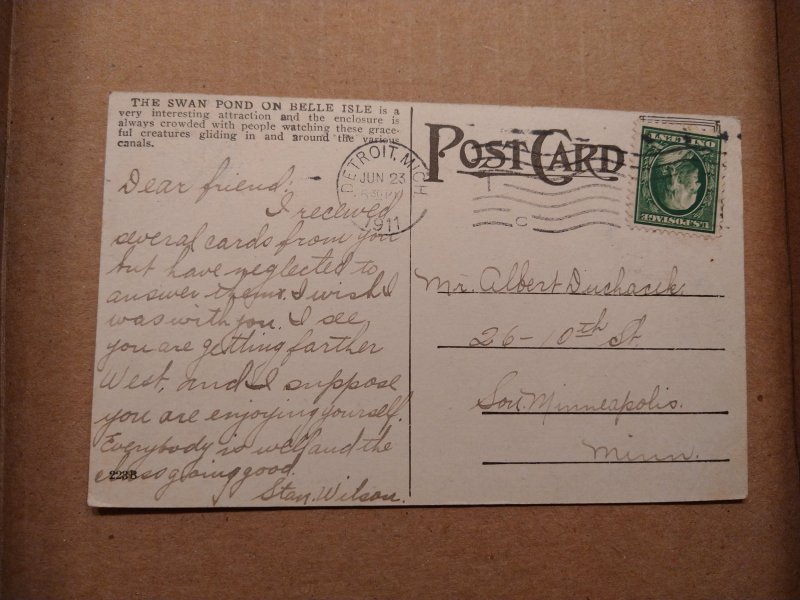 THE SWAN POND ON BELLE ISLE is a
very interesting attraction and the enclosure is
always crowded with people watching these grace-
ful creatures gliding in and around the various
canals.
Dear friend:
I received
several cards from you
but have neglected to
answer them. I wish I
was with you. I see
you are getting farther
West, and I suppose
you are enjoying yourself.
Everybody is well and the
class going good.
Stan. Wilson.
223B
DETROIT, MICH
JUN 23
1911
C
POST CARD
U.S. POSTAGE
Mr. Albert Duchacek.
26-10th St
Sou. Minneapolis.
Minn.